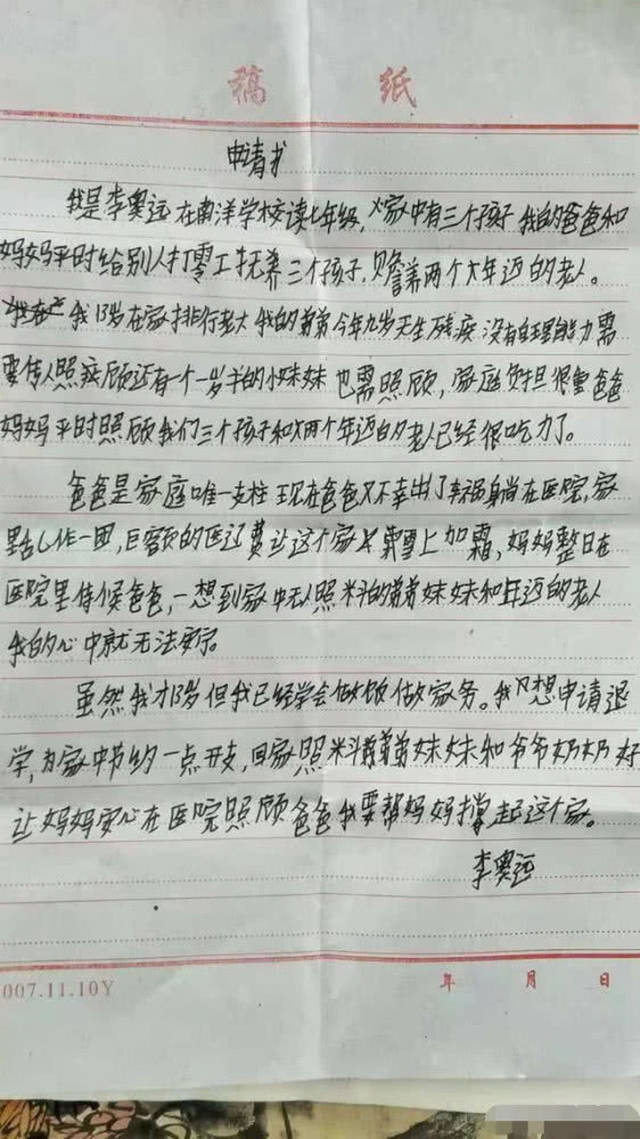 稿 纸
申请书
我是李奥运在南洋学校读七年级,家中有三个孩子 我的爸爸和
妈妈平时给别人打零工抚养三个孩子,赡养两个大年迈的老人。
我13岁在家排行老大 我的弟弟今年九岁天生残疾 没有自理能力需
要专人照顾还有一个一岁半的小妹妹 也需照顾,家庭负担很重爸爸
妈妈平时照顾我们三个孩子和两个年迈的老人已经很吃力了。
爸爸是家庭唯一支柱 现在爸爸又不幸出了车祸身尚在医院,家
里乱作一团,巨额的医辽费让这个家 雪上加霜,妈妈整日在
医院里侍候爸爸,一想到家中无人照料的弟弟妹妹和年迈的老人
我的心中就无法安宁。
虽然我才13岁但我已经学会做饭做家务。我只想申请退
学,为家中节约一点开支,回家照料弟弟妹妹和爷爷奶奶 好
让妈妈安心在医院照顾爸爸我要帮妈妈撑起这个家。
李奥运
007.11.10Y 年 月 日